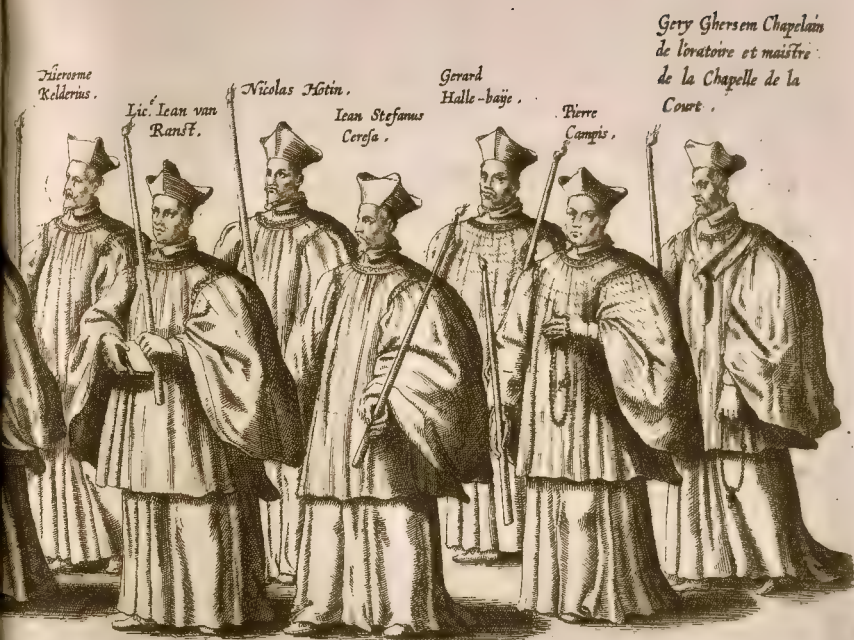 Hierosme
Kelderius.
Lic.e Iean van
Ranst.
Nicolas Hotin.
Iean Stefanus
Ceresa.
Gerard
Halle-baije.
Pierre
Campis.
Gery Ghersem Chapelain
de l'oratoire et maistre
de la Chapelle de la
Court.